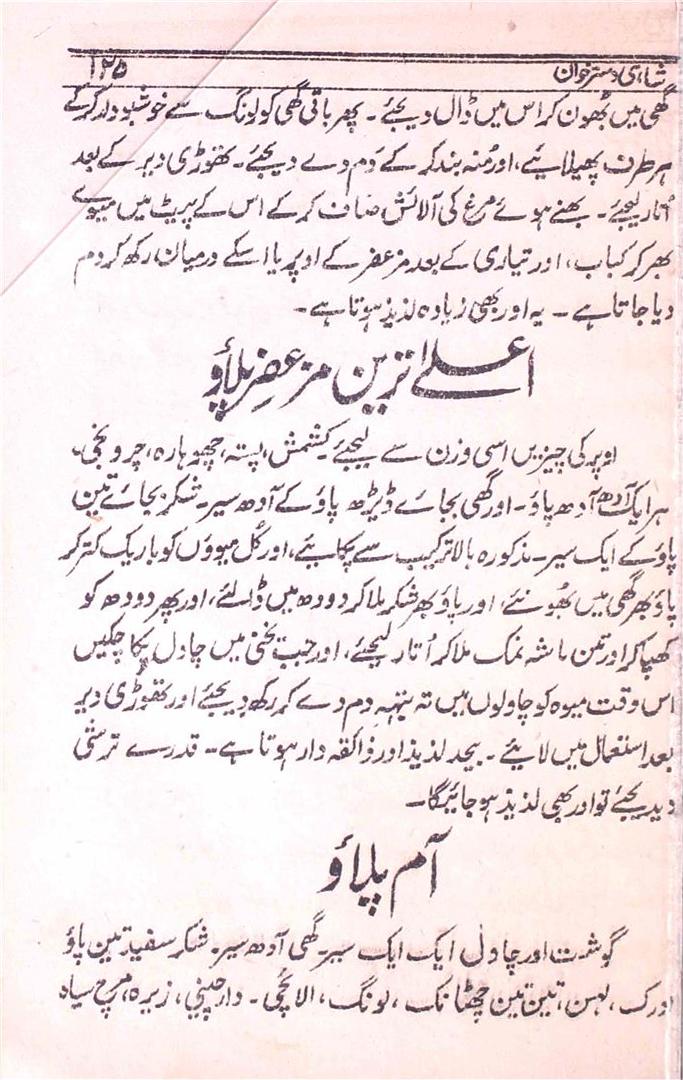 شاہی دسترخوان ۱۲۵
گھی میں بھون کر اس میں ڈال دیجئے۔ پھر باقی گھی کو لونگ سے خوشبودار کر کے
ہر طرف پھیلائیے، اور منہ بند کر کے دَم دے دیجئے۔ تھوڑی دیر کے بعد
اُتار لیجئے۔ بھنے ہوئے مرغ کی آلائش صاف کر کے اس کے پیٹ میں میوے
بھر کر کباب، اور تیاری کے بعد مزعفر کے اوپر یا اسکے درمیان رکھ کر دم
دیا جاتا ہے۔ یہ اور بھی زیادہ لذیذ ہوتا ہے۔
اعلےٰ ترین مزعفر پلاؤ
اوپر کی چیزیں اسی وزن سے لیجئے۔ کشمش، پستہ، چھوہارہ، چرونجی،
ہر ایک آدھ آدھ پاؤ۔ اور گھی بجائے ڈیڑھ پاؤ کے آدھ سیر۔ شکر بجائے تین
پاؤ کے ایک سیر۔ مذکورہ بالا ترکیب سے پکائیے، اور کُل میووں کو باریک کتر کر
پاؤ بھر گھی میں بھُونئے، اور پاؤ بھر شکر ملا کر دودھ میں ڈالئے، اور پھر دودھ کو
کھپا کر اور تین ماشہ نمک ملا کر اُتار لیجئے، اور جب یخنی میں چاول پکا چکیں
اس وقت میوہ کو چاولوں میں تہ بتہہ دم دے کر رکھ دیجئے اور تھوڑی دیر
بعد استعمال میں لائیے۔ بیحد لذیذ اور ذائقہ دار ہوتا ہے۔ قدرے ترشی
دیدیجئے تو اور بھی لذیذ ہو جائیگا۔
آم پلاؤ
گوشت اور چاول ایک ایک سیر۔ گھی آدھ سیر۔ شکر سفید تین پاؤ
ادرک، لہسن، تین تین چھٹانک، لونگ، الائچی۔ دارچینی، زیرہ، مرچ سیاہ